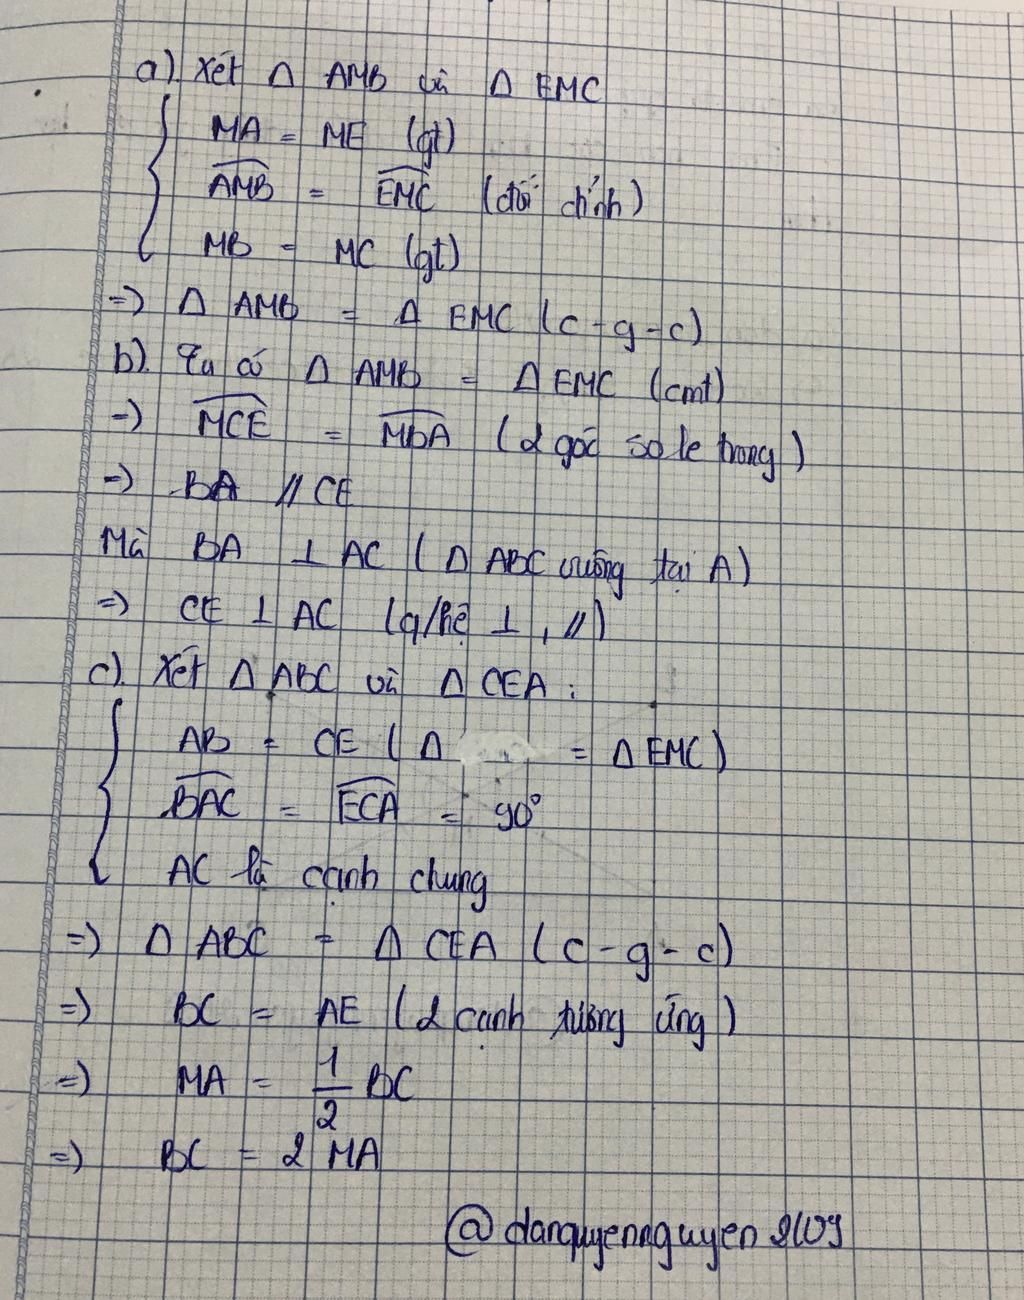 a) Xét Δ AMB và Δ EMC
MA = ME (gt)
AMB = EMC (đối đỉnh)
MB = MC (gt)
=) Δ AMB = Δ EMC (c-g-c)
b) Ta có Δ AMB = Δ EMC (cmt)
=) MCE = MBA (2 góc so le trong)
=) BA // CE
Mà BA ⊥ AC (Δ ABC vuông tại A)
=) CE ⊥ AC (q/hệ ⊥, //)
c) Xét Δ ABC và Δ CEA :
AB = CE (Δ = Δ EMC)
BAC = ECA = 90°
AC là cạnh chung
=) Δ ABC = Δ CEA (c-g-c)
=) BC = AE (2 cạnh tương ứng)
=) MA = 1/2 BC
=) BC = 2 MA